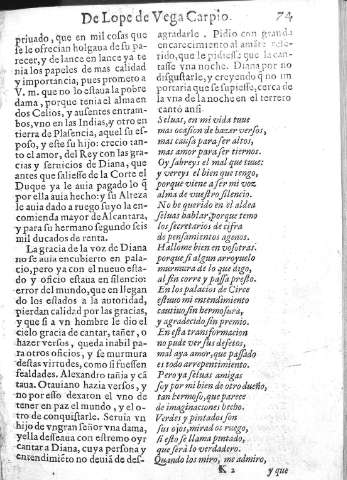 De Lope de Vega Carpio. 74
priuado, que en mil cosas que
se le ofrecian holgaua de su pa-
recer, y de lance en lance ya te
nia los papeles de mas calidad
y importancia, pues prometo a
V. m. que no lo estaua la pobre
dama, porque tenia el alma en
dos Celios, y ausentes entram-
bos, vno en las Indias, y otro en
tierra de Plasencia, aquel su es-
poso, y este su hijo: crecio tan-
to el amor, del Rey con las gra-
cias y seruicios de Diana, que
antes que saliesse de la Corte el
Duque ya le auia pagado lo q̃
por ella auia hecho: y su Alteza
le auia dado a ruego suyo la en-
comienda mayor de Alcantara,
y para su hermano segundo seis
mil ducados de renta.
La gracia de la voz de Diana
no se auia encubierto en pala-
cio, pero ya con el nueuo esta-
do y oficio estaua en silencio:
error del mundo, que en llegan
do los estados a la autoridad,
pierdan calidad por las gracias,
y que si a vn hombre le dio el
cielo gracia de cantar, tañer, o
hazer versos, queda inabil pa-
ra otros oficios, y se murmura
destas virtudes, como si fuessen
fealdades. Alexandro tañia y cã
taua. Otauiano hazia versos, y
no por esso dexaron el vno de
tener en paz el mundo, y el o-
tro de conquistarle. Seruia vn
hijo de vn gran señor vna dama,
y ella desseaua con estremo oyr
cantar a Diana, cuya persona y
entendimiẽto no deuia de des-
agradarle. Pidio con grande
encarecimiento al amãte refe-
rido, que le pidiesse que la can-
tasse vna noche. Diana por no
disgustarle, y creyendo q̃ no im
portaria que se supiesse, cerca de
la vna de la noche en el terrero
cantò ansi:
Seluas, en mi vida tuue
mas ocasion de hazer versos,
mas causa para ser altos,
mas amor para ser tiernos.
Oy sabreys el mal que tuue:
y vereys el bien que tengo,
porque viene a ser mi voz
alma de vuestro silencio.
No he querido en el aldea
seluas hablar, porque temo
los secretarios de cifra
de pensamientos agenos.
Hallome bien en vosotras.
porque si algun arroyuelo
murmura de lo que digo,
al fin corre y passa presto.
En los palacios de Circe
estuuo mi entendimiento
cautiuo sin hermosura,
y agradecido sin premio.
En esta transformacion
no pude ver sus defetos,
mal aya amor, que passado
es todo arrepentimiento.
Pero ya seluas amigas
soy por mi bien de otro dueño,
tan hermoso, que parece
de imaginaciones hecho.
Verdes y pintados son
sus ojos, mirad os ruego,
si esto se llama pintado,
que serà lo verdadero.
Quando los miro, me admiro,
K 2 y que